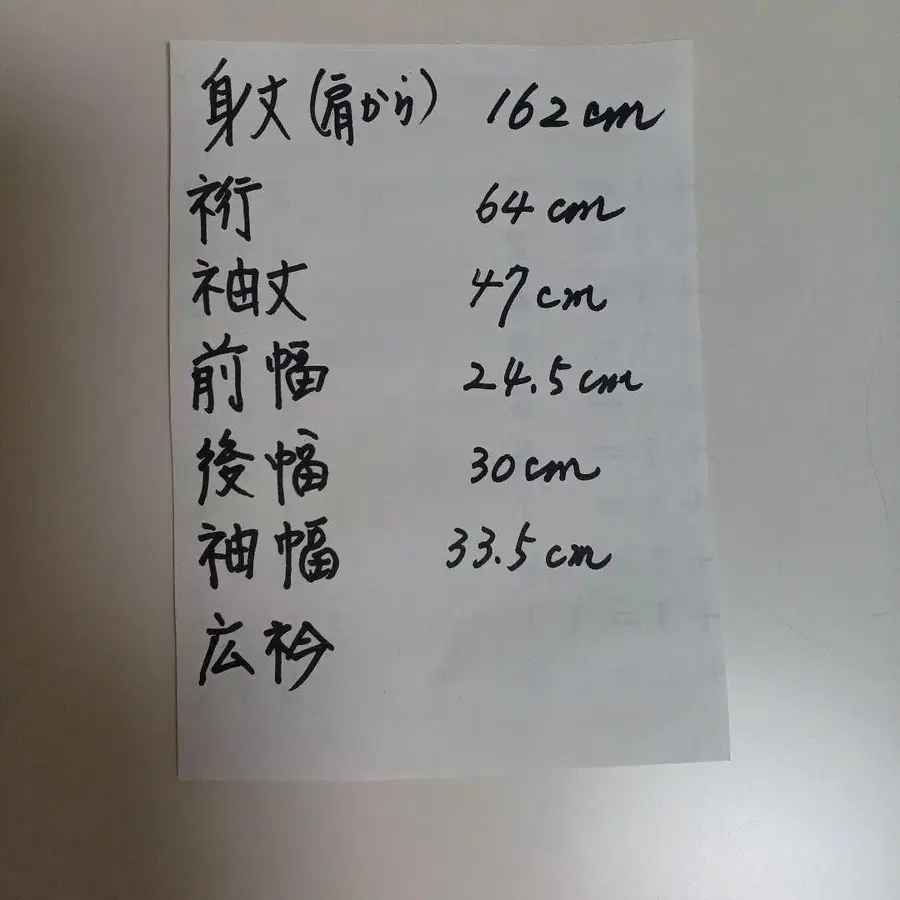 身丈(肩から) 162cm
裄 64cm
袖丈 47cm
前幅 24.5cm
後幅 30cm
袖幅 33.5cm
広衿